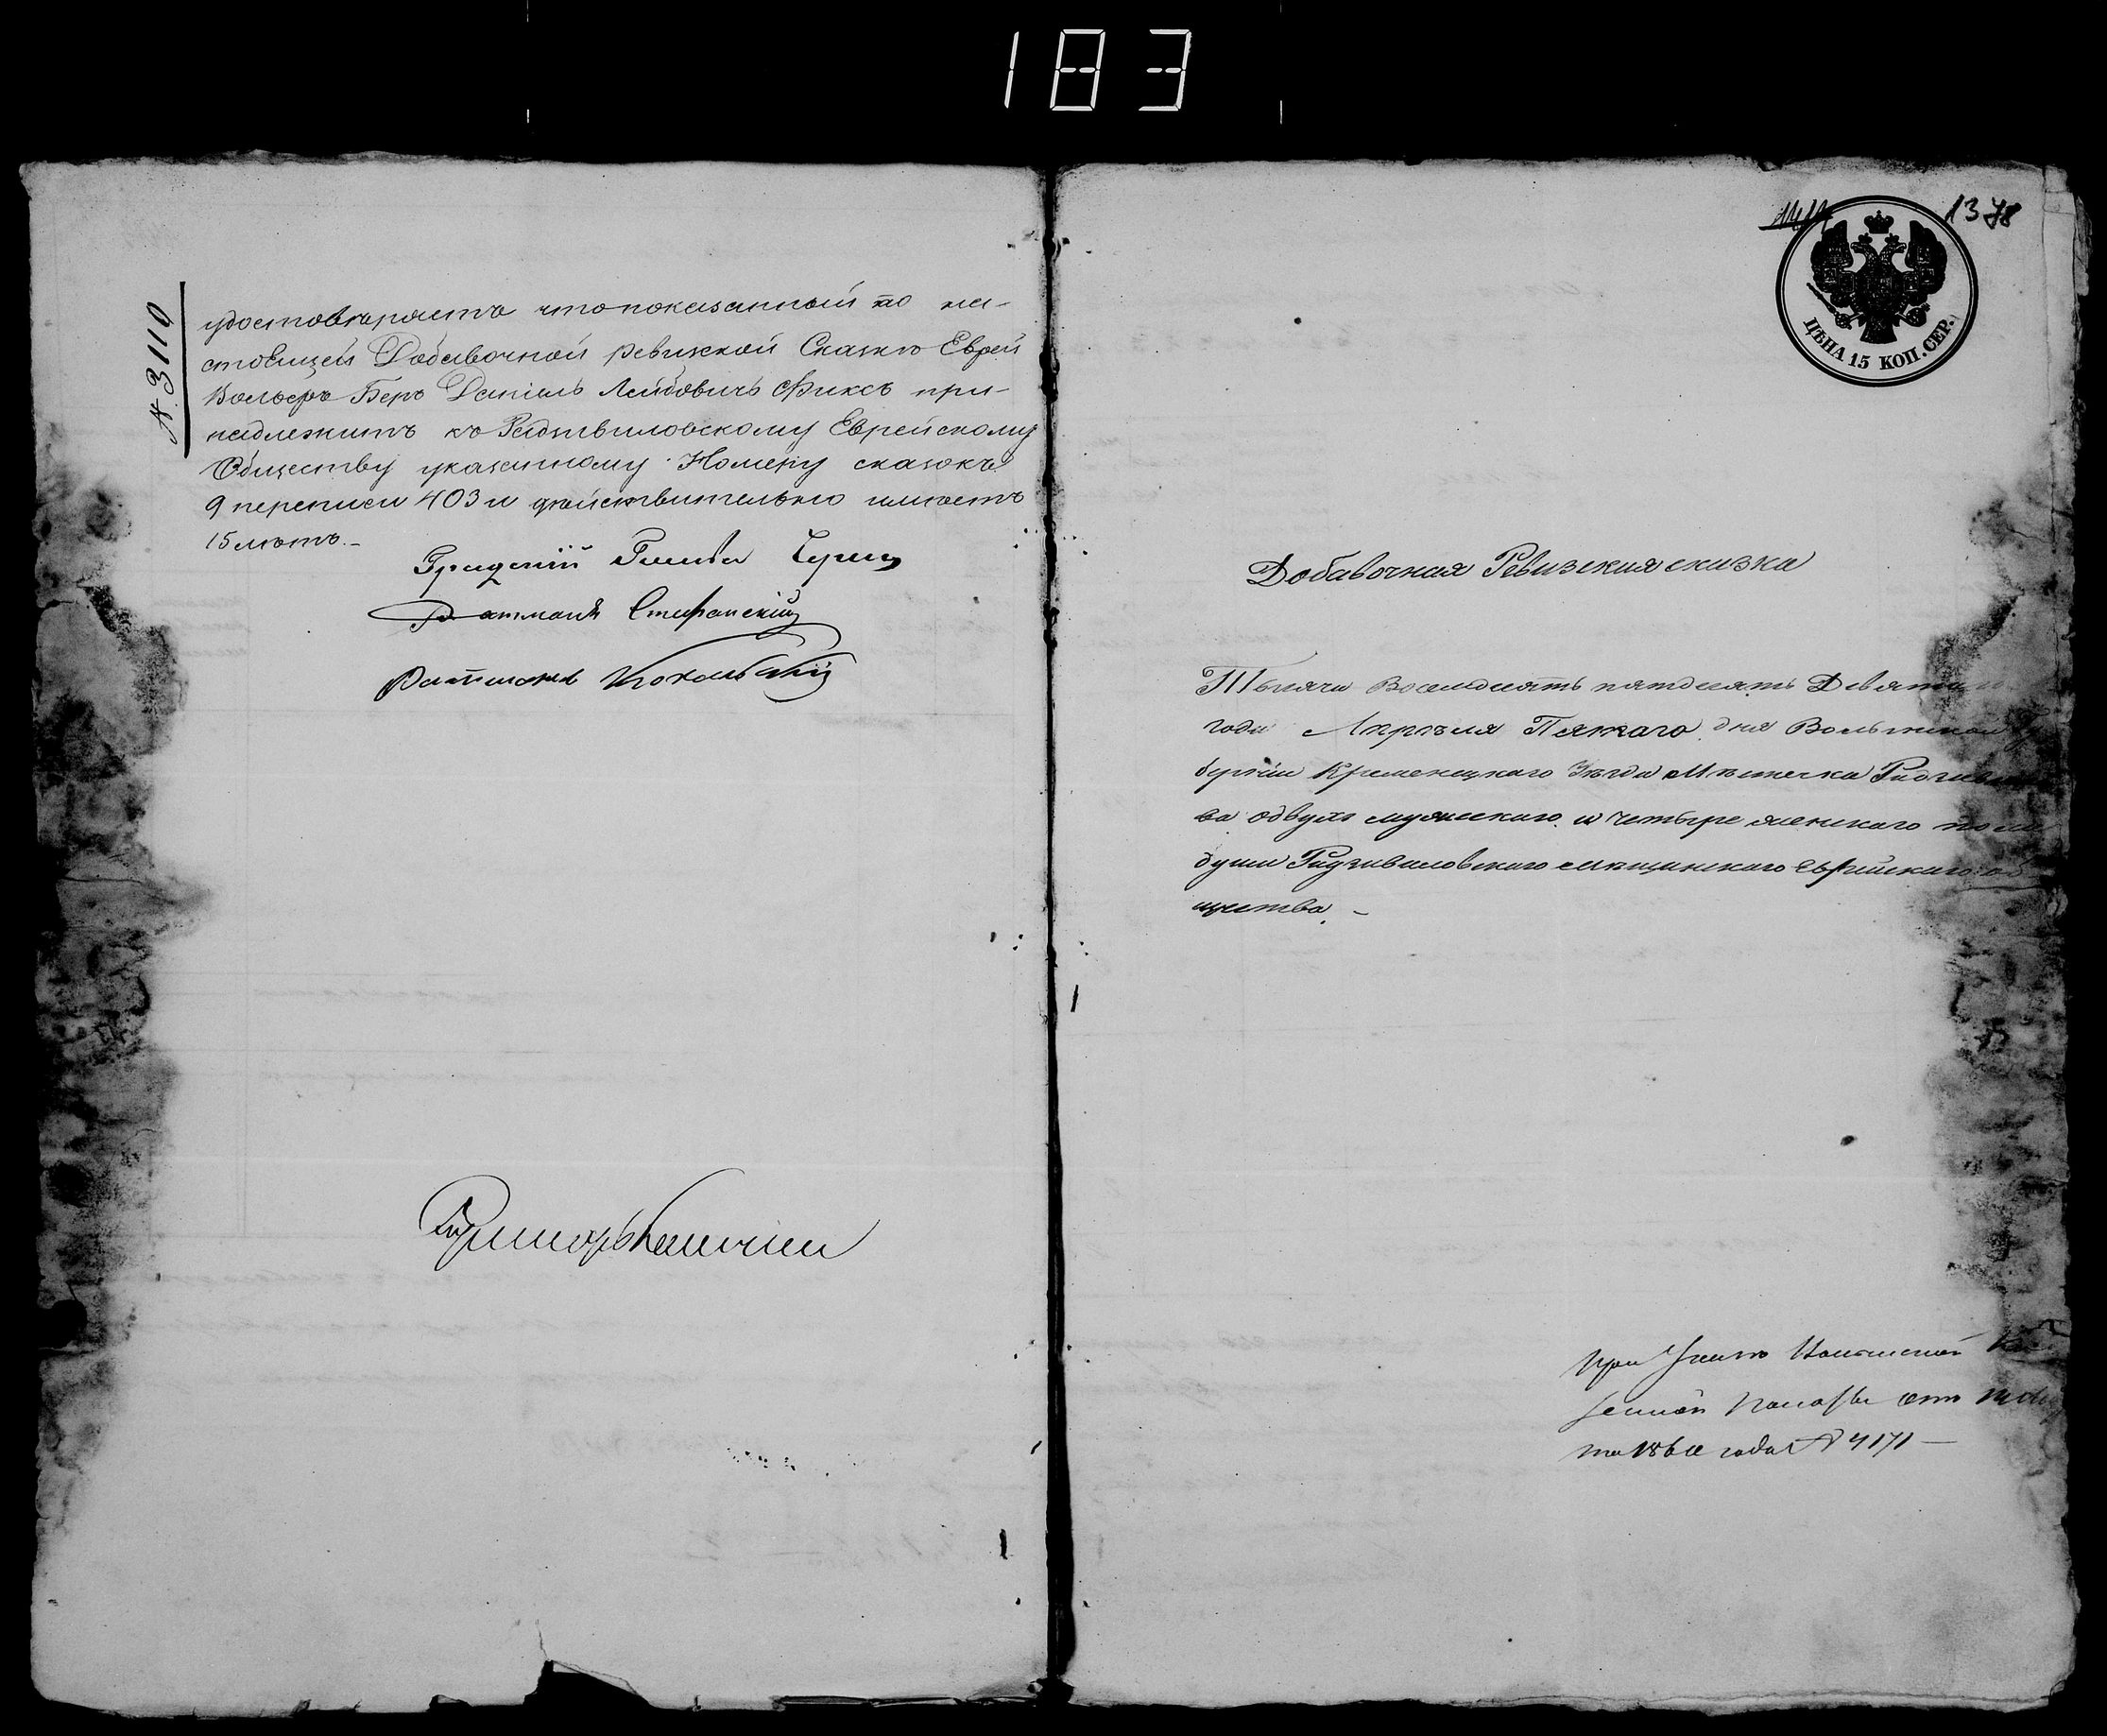 183
№ 3110
удостовѣряетъ что показанный по на-
стоящей Добавочной ревизкой Сказкѣ Еврей
Вольфъ Беръ Даніель Лейбовичъ Фиксъ при-
надлежитъ къ Радзивиловскому Еврейскому
Обществу указанному Номеру сказокъ
9 переписи 403 и дѣйствительно имѣетъ
15 лѣтъ. -
Градскій Глава
Ратманъ
Ратманъ
1378
ЦѢНА 15 КОП. СЕР.
Добавочная Ревизская сказка
Тысячи Восемдесятъ пятдесятъ Девятаго
года Апрѣля Пятаго дня Волынской Гу
берніи Кременецкаго Уѣзда Мѣстечка Радзивило
ва о двухъ мужескаго и четыре женскаго пола
души Радзивиловскаго мѣщанскаго еврейскаго об
щества. -
При Указѣ Волынской Ка
зенной Палаты отъ
года № 4171 -